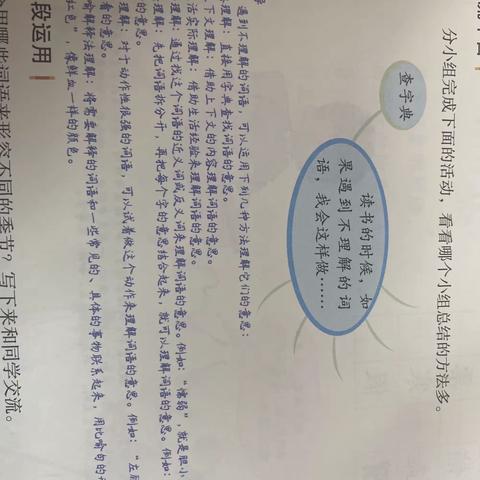 分小组完成下面的活动，看看哪个小组总结的方法多。
查字典
读书的时候，如
果遇到不理解的词
语，我会这样做……
遇到不理解的词语，可以运用下列几种方法理解它们的意思：
理解：直接用字典查找词语的意思。
下文理解：借助上下文的内容理解词语的意思。
活实际理解：借助生活经验来理解词语的意思。
理解：通过找这个词语的近义词或反义词来理解词语的意思。例如：“懦弱”，就是胆小
理解：先把词语拆分开，再把每个字的意思结合起来，就可以理解词语的意思。例如：
理解：对于动作性很强的词语，可以试着做这个动作来理解词语的意思。例如：“左顾
着的意思。
喻解释法理解：将需要解释的词语和一些常见的、具体的事物联系起来，用比喻句的
红色”，像鲜血一样的颜色。
段运用
用哪些词语来形容不同的季节？写下来和同学交流。